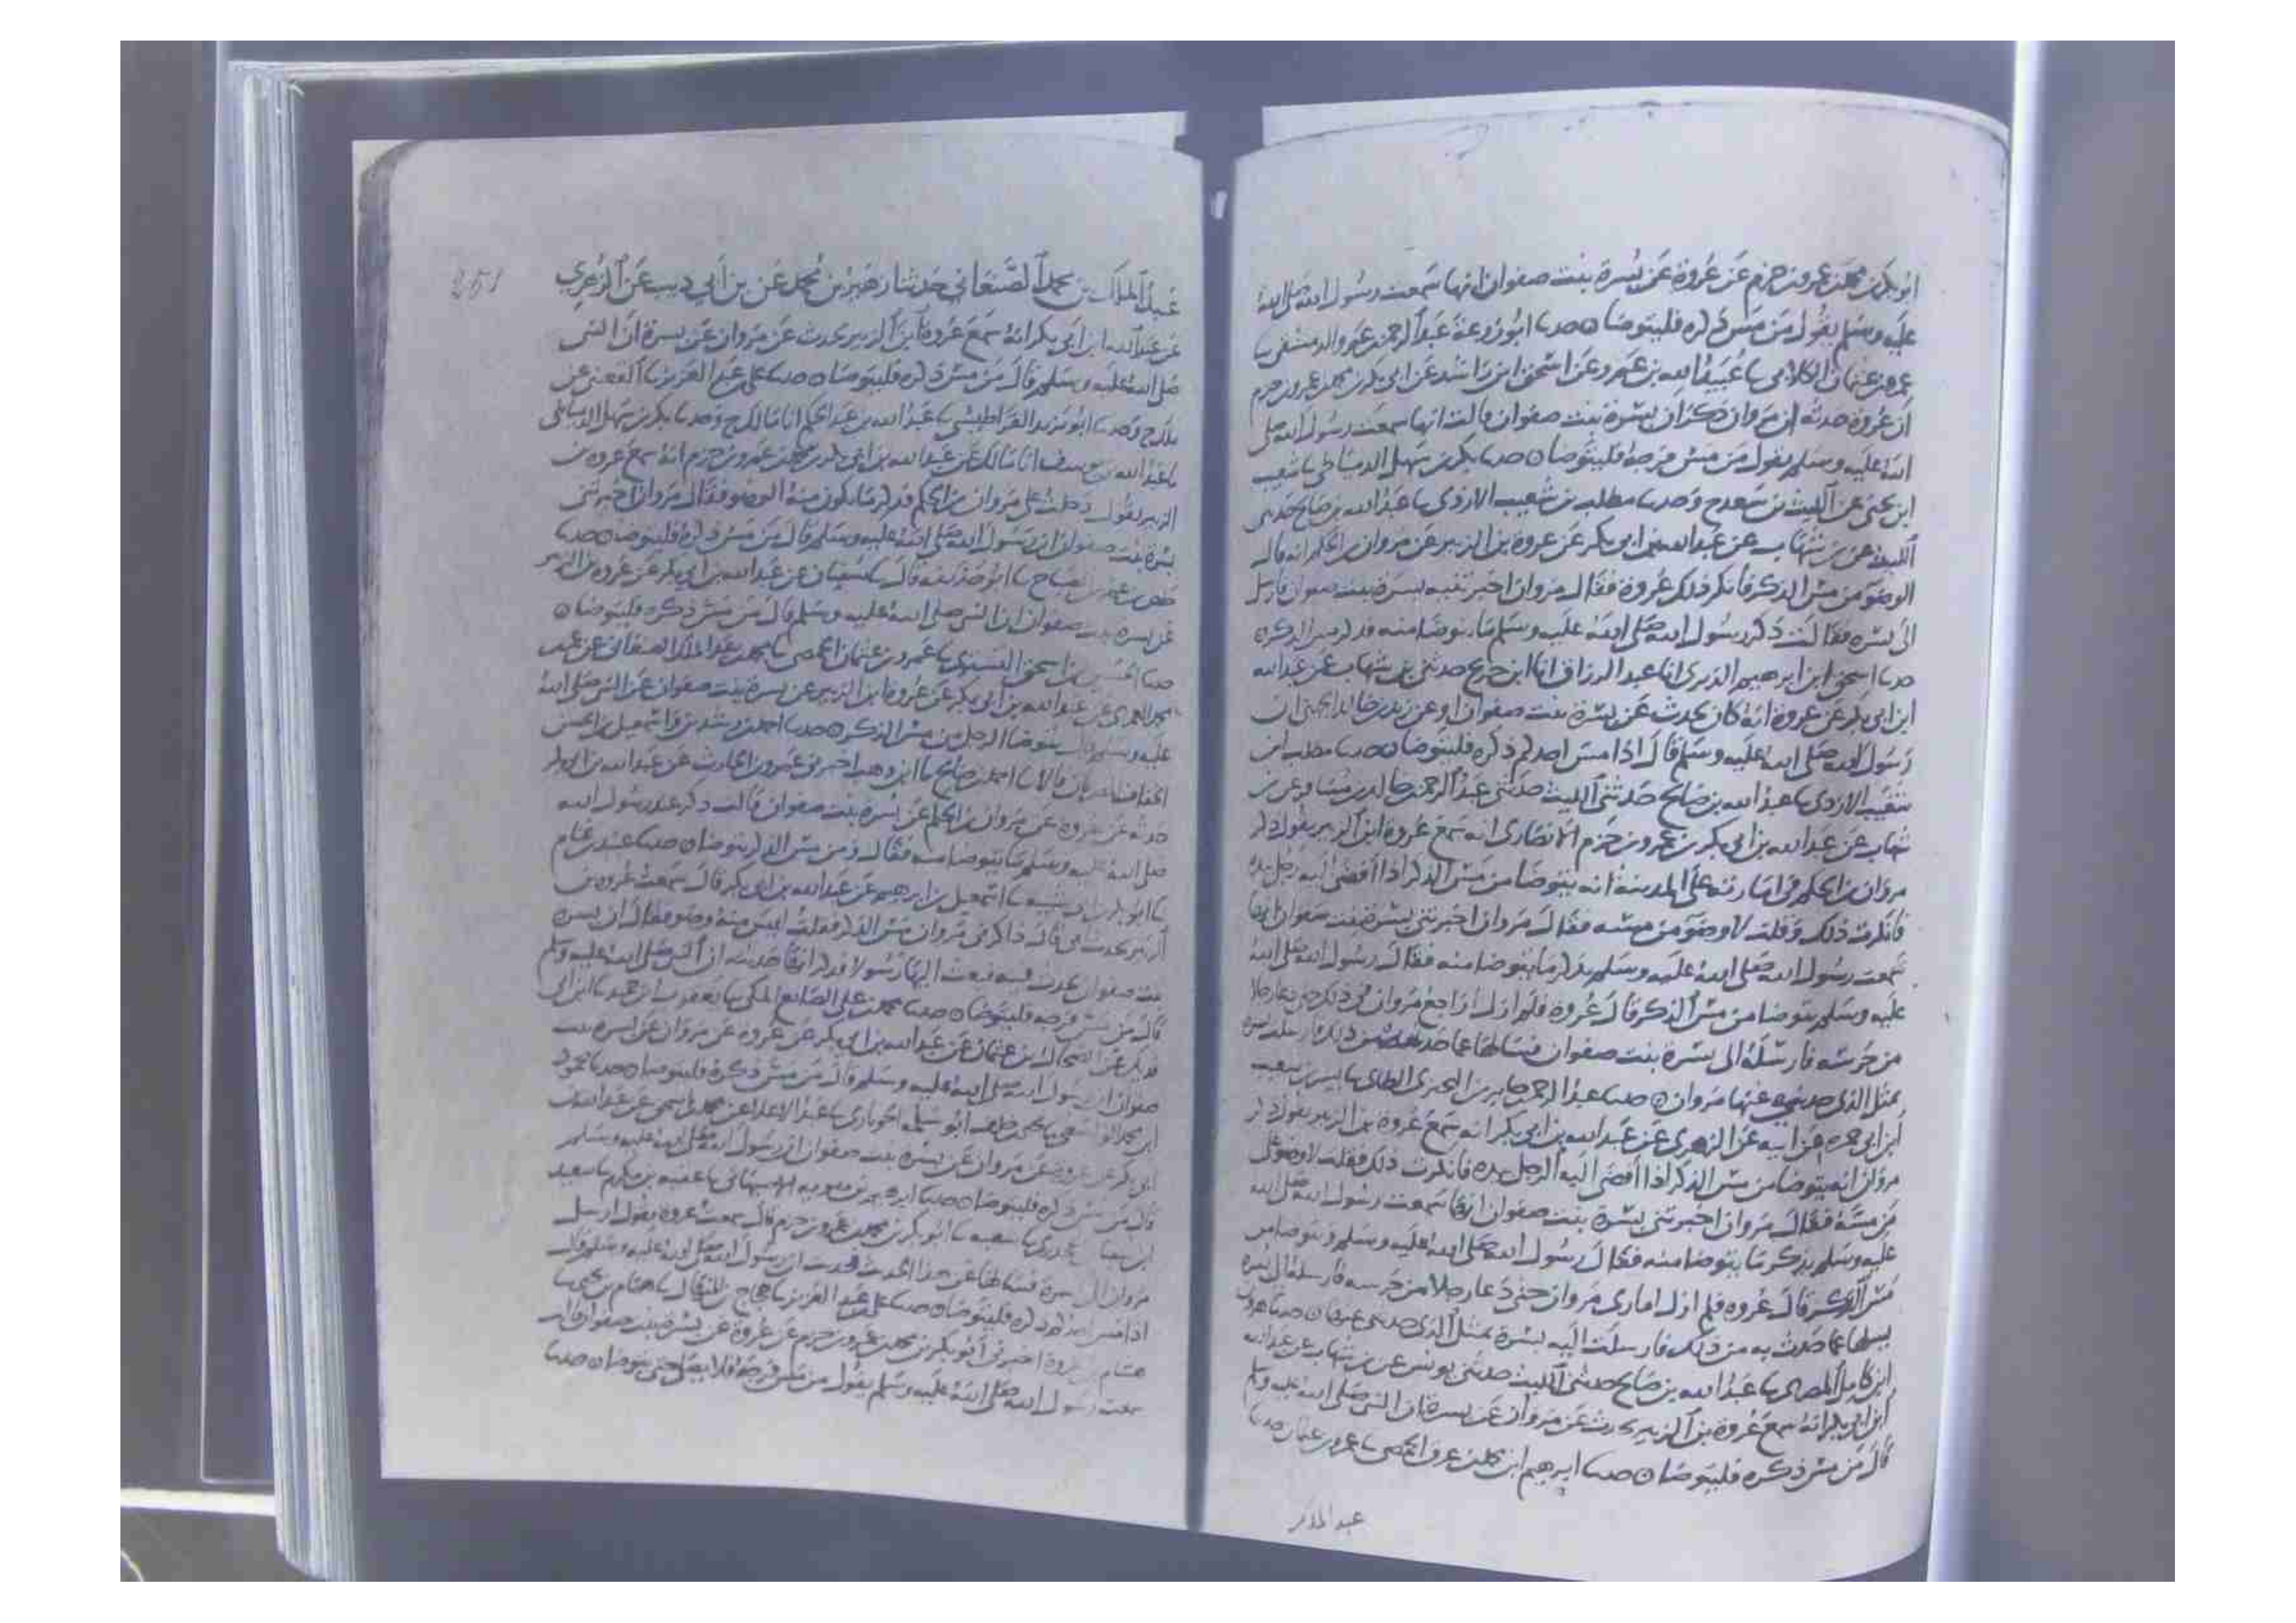 ابو بكر بن محمد بن عمرو بن حزم عن عروة عن بسرة بنت صفوان انها سمعت رسول الله صلى الله
عليه وسلم يقول من مس ذكره فليتوضا ه حدثنا ابو زرعة عبد الرحمن بن عمرو الدمشقي
عبيد الله بن عمرو عن اسحق ابن راشد عن ابي بكر بن محمد بن عمرو بن حزم
ان عروة حدثه ان مروان ذكر ان بسرة بنت صفوان قالت انها سمعت رسول الله صلى
الله عليه وسلم يقول من مس فرجه فليتوضا ه حدثنا بكر بن سهل الدمياطي شعيب
ابن يحيى عن الليث بن سعد ح وحدثنا مطلب بن شعيب الازدي عبد الله بن صالح حدثني
الليث عن بن شهاب عن عبد الله بن ابي بكر عن عروة بن الزبير عن مروان بن الحكم انه قال
الوضو من مس الذكر فانكر ذلك عروة فقال مروان اخبرتنيه بسرة بنت صفوان فارسل
الى بسرة فقالت ذكر رسول الله صلى الله عليه وسلم ما يتوضا منه فذكر مس الذكر ه
حدثنا اسحق ابن ابرهيم الدبري انا عبد الرزاق انا ابن جريج حدثني بن شهاب عن عبد الله
ابن ابي بكر عن عروة انه كان يحدث عن بسرة بنت صفوان او عن زيد بن خالد الجهني ان
رسول الله صلى الله عليه وسلم قال اذا مس احدكم ذكره فليتوضا ه حدثنا مطلب ابن
شعيب الازدي عبد الله بن صالح حدثني الليث حدثني عبد الرحمن بن خالد بن مسافر عن بن
شهاب عن عبد الله بن ابي بكر بن عمرو بن حزم الانصاري انه سمع عروة ابن الزبير يقول ذكر
مروان بن الحكم في امارته على المدينة انه يتوضا من مس الذكر اذا افضى اليه رجل بيده
فانكرت ذلك وقلت لا وضو من مسه فقال مروان اخبرتني بسرة بنت صفوان انها
سمعت رسول الله صلى الله عليه وسلم يذكر ما يتوضا منه فقال رسول الله صلى الله
عليه وسلم يتوضا من مس الذكر قال عروة فلم ازل اراجع مروان في ذلك حتى دعا رجلا
من حرسه فارسله الى بسرة بنت صفوان فسالها عما حدثت من ذلك فارسلت بسرة
بمثل الذي حدثني عنها مروان ه حدثنا عبد الرحمن بن جابر بن البختري الطائي بشر بن شعيب
ابن ابي حمزة عن ابيه عن الزهري عن عبد الله بن ابي بكر انه سمع عروة بن الزبير يقول ذكر
مروان انه يتوضا من مس الذكر اذا افضى اليه الرجل بيده فانكرت ذلك فقلت لا وضو على
من مسه فقال مروان اخبرتني بسرة بنت صفوان انها سمعت رسول الله صلى الله
عليه وسلم يذكر ما يتوضا منه فقال رسول الله صلى الله عليه وسلم ويتوضا من
مس الذكر قال عروة فلم ازل اماري مروان حتى دعا رجلا من حرسه فارسله الى بسرة
يسلها عما حدثت به من ذلك فارسلت اليه بسرة بمثل الذي حدثني عنها ه حدثنا هرون
ابن كامل المصري عبد الله بن صالح حدثني الليث حدثني يونس عن بن شهاب عن عبد الله
ابن ابي بكر انه سمع عروة بن الزبير يحدث عن مروان عن بسرة ان النبي صلى الله عليه وسلم
قال من مس ذكره فليتوضا ه حدثنا ابرهيم ابن محمد بن عرق الحمصي عمرو بن عثمان حدثنا
عبد الملك
251
عبد الملك بن محمد الصنعاني حدثنا زهير بن محمد عن بن ابي ذيب عن الزهري
عن عبد الله ابن ابي بكر انه سمع عروة ابن الزبير يحدث عن مروان عن بسرة ان النبي
صلى الله عليه وسلم قال من مس ذكره فليتوضا ه حدثنا علي بن عبد العزيز القعنبي عن
ملك ح وحدثنا ابو يزيد القراطيسي عبد الله بن عبد الحكم انا مالك ح وحدثنا بكر بن سهل الدمياطي
عبد الله بن يوسف انا مالك عن عبد الله بن ابي بكر بن محمد بن عمرو بن حزم انه سمع عروة بن
الزبير يقول دخلت على مروان بن الحكم فذكر ما يكون منه الوضو فقال مروان اخبرتني
بسرة بنت صفوان ان رسول الله صلى الله عليه وسلم قال من مس ذكره فليتوضا ه حدثنا
حفص بن عمر بن الصباح ابو حذيفة قال سفيان عن عبد الله بن ابي بكر عن عروة بن الزبير
عن بسرة بنت صفوان ان النبي صلى الله عليه وسلم قال من مس ذكره فليتوضا ه
حدثنا الحسين بن اسحق التستري عمرو بن عثمان الحمصي محمد بن عبد الملك الصنعاني عن
عن عبد الله بن ابي بكر عن عروة ابن الزبير عن بسرة بنت صفوان عن النبي صلى الله
عليه وسلم قال يتوضا الرجل من مس الذكر ه حدثنا احمد بن رشدين واسمعيل بن الحسن
الخفاف المصريان قالا احمد بن صالح ابن وهب اخبرني عمرو بن الحارث عن عبد الله بن ابي بكر
حدثه عن عروة عن مروان بن الحكم عن بسرة بنت صفوان قالت ذكر عند رسول الله
صلى الله عليه وسلم ما يتوضا منه فقال ومن مس الذكر يتوضا ه حدثنا عبيد بن غنام
ابو بكر بن ابي شيبة اسمعيل بن ابرهيم عن عبد الله بن ابي بكر قال سمعت عروة بن
الزبير يحدث ابي قال ذاكرني مروان مس الذكر فقلت ليس منه وضو فقال ان بسرة
بنت صفوان تحدث فيه فبعث اليها رسولا فذكر انها حدثت ان النبي صلى الله عليه وسلم
قال من مس فرجه فليتوضا ه حدثنا محمد بن علي الصائغ المكي يعقوب ابن حميد ابن ابي
فديك عن الضحاك بن عثمان عن عبد الله بن ابي بكر عن عروة عن مروان عن بسرة بنت
صفوان ان رسول الله صلى الله عليه وسلم قال من مس ذكره فليتوضا ه حدثنا محمود
ابن محمد الواسطي يحيى بن خلف ابو سلمة الجوباري عبد الاعلى عن محمد بن اسحق عن عبد الله بن
ابي بكر عن عروة عن مروان عن بسرة بنت صفوان ان رسول الله صلى الله عليه وسلم
قال من مس ذكره فليتوضا ه حدثنا ابرهيم بن متويه الاصبهاني عقبة بن مكرم سعيد
ابن شعبة ابو بكر بن محمد بن عمرو بن حزم قال سمعت عروة يقول ارسل
مروان الى بسرة فسالها عن هذا الحديث فحدثت ان رسول الله صلى الله عليه وسلم قال
اذا مس احدكم ذكره فليتوضا ه حدثنا علي بن عبد العزيز حجاج بن المنهال همام بن يحيى
هشام بن عروة اخبرني ابو بكر بن محمد بن عمرو بن حزم عن عروة عن بسرة بنت صفوان قالت
سمعت رسول الله صلى الله عليه وسلم يقول من مس فرجه فلا يصلي حتى يتوضا ه حدثنا